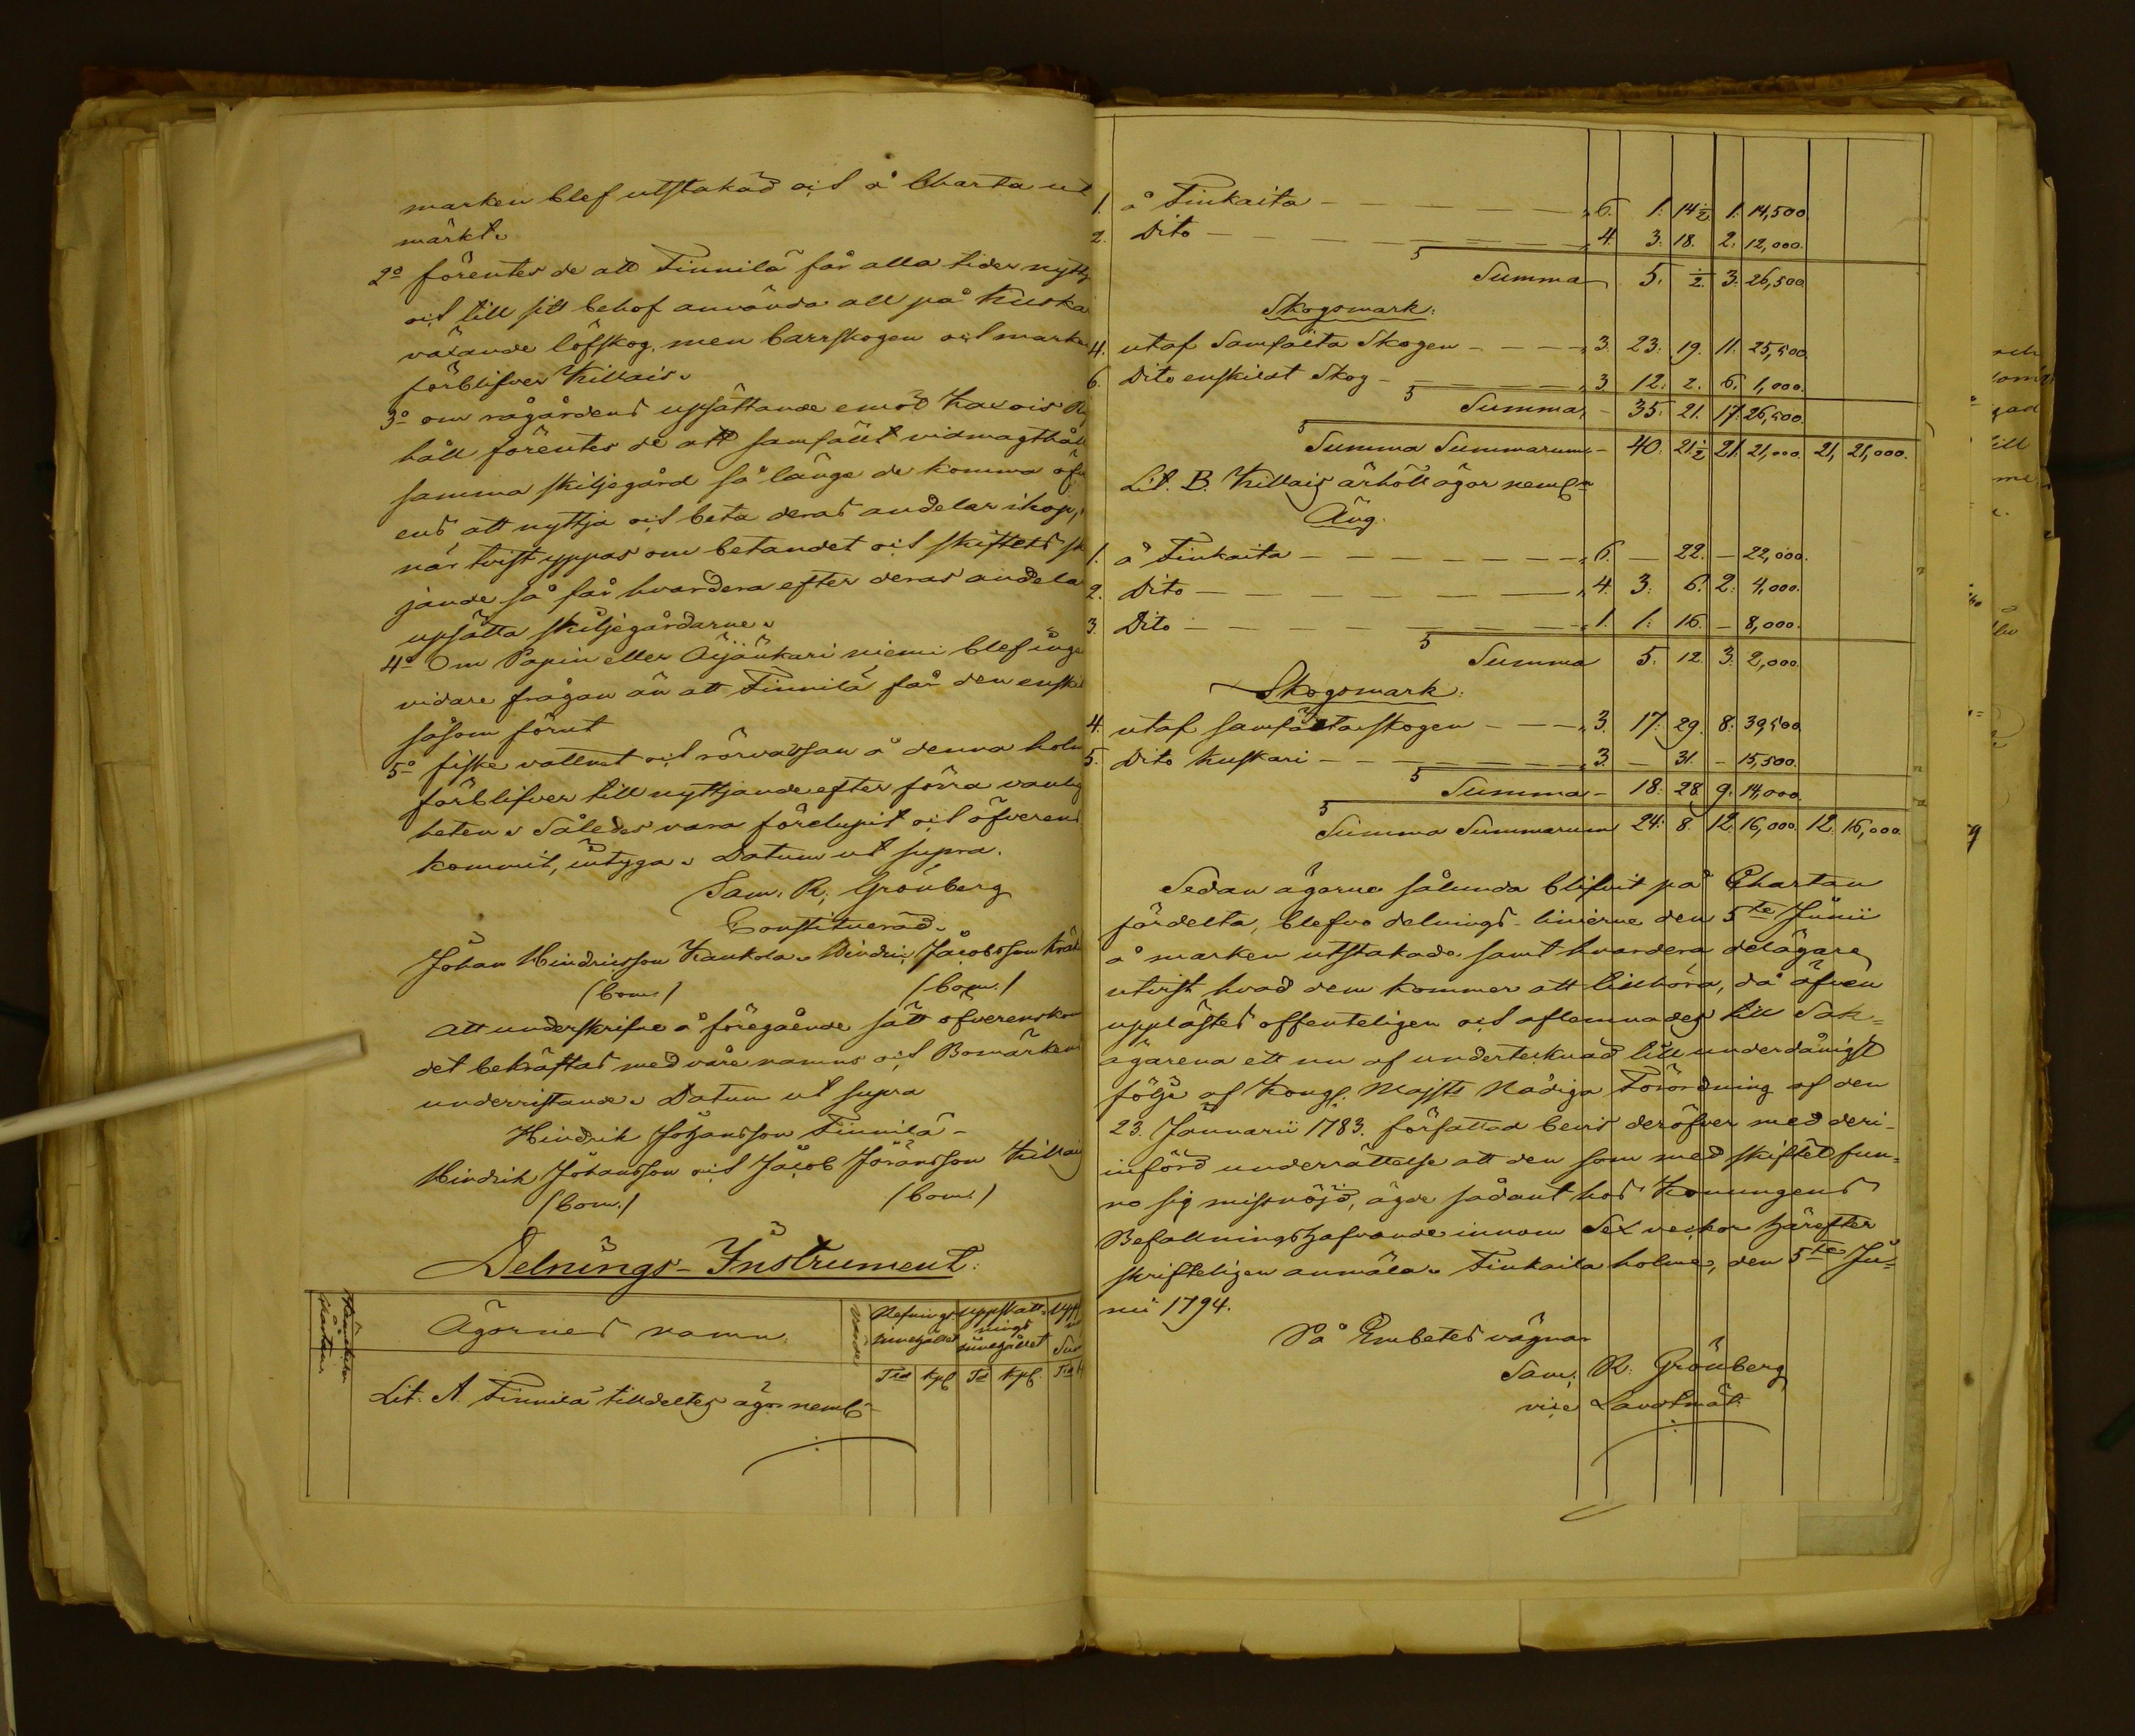 marken blef utstakad och å Charta ut
märkt.
2o förentes de att Finnilä får alla tider nyttj
och till sitt behof använda all på Kuska
växande löfskog, men barrskogen och marken
förblifver Killais.
3o om rågårdens upsättande emot Kaxois Rå
håll förentes de att samfält vidmagthåll
samma skiljegård så länge de komma öfv
ens att nyttja och beta deras andelar ihop,
när tvist yppas om betandet och skiftets sk
jande så får hvardera efter deras andelar
upsätta skiljegårdarne.
4o Om Papin eller Äijänkari niemi blef inga
vidare frågan än att Finnilä får den enskil
såsom förut
5o fiske vattnet och rörvassan å denna holm
förblifver till nyttjande efter förra vanlig
heten. Således vara förelupit och öfverens
kommit, intyga. Datum ut supra.
Sam. R. Grönberg
Constituerad.
Johan Hindricsson Kaukola. Hindric Jacobsson Kräk
(bom.) (bom.)
Att underskrifne å föregående sätt öfverenskom
det bekräftas med våre namns och Bomärkens
underristande. Datum ut supra
Hindrik Johansson Finnilä -
Hindrik Johansson och Jacob Jöransson Killais
(bom.) (bom.)
Delnings-Instrument:
Ägornes namn. Refnings innehållet uppskatt-nings innehållet
Tld kpl Td kpl Tld
Lit. A. Finnilä tilldeltes ägor neml.
1. å Finkaita - 6. 1. 14½ 1. 14,500.
2. Dito - 4. 3. 18. 2. 12,000.
Summa 5. ½ 3. 26,500
Skogsmark:
4. utaf Samfälta Skogen - 3. 23. 19. 11. 25,500
6. Dito enskildt Skog - 3. 12. 2. 6. 1,000.
Summa - 35. 21. 17. 26,500.
Summa Summarum - 40. 21½ 21. 21,000. 21, 21,000.
Lit. B. Killais ärhölt ägor neml.
Äng.
1. å Finkaita - 6. - 22. - 22,000.
2. Dito - 4. 3. 6. 2. 4,000.
3. Dito - 1. 1. 16. - 8,000.
Summa 5. 12. 3. 2,000.
Skogsmark:
4. utaf samfälta skogen - 3. 17. 29. 8. 39,500
5. Dito Kuskari - 3. - 31. - 15,500.
Summa - 18. 28. 9. 14,000
Summa Summarum 24. 8. 12. 16,000. 12. 16,000.
Sedan ägorne sålunda blifvit på Chartan
fördelta, blefvo delnings-linierne den 5te Junii
å marken utstakade samt hvardera delägare
utvist hvad dem kommer att tillhöra, då äfven
upplästes offenteligen och aflemnades till Sak=
ägarena ett nu af undertecknad till underdånigst
följe af Kongl. Majsts Nådiga Förordning af den
23. Januarii 1783. författad bevis deröfver med deri-
införd underrättelse att den som med skiftet fun=
no sig missnöjd, ägde sådant hos Konungens
Befallningshafvande innom Sex veckor härefter
skrifteligen anmäla. Finkaita holme, den 5te Ju=
nii 1794.
På Embetes vägnar
Sam. R. Grönberg
vice Landtmät.